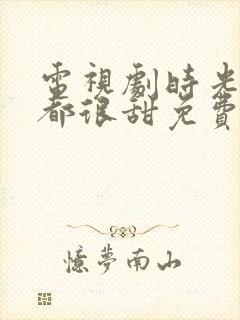 電視劇時光
都很甜免費
憶夢南山